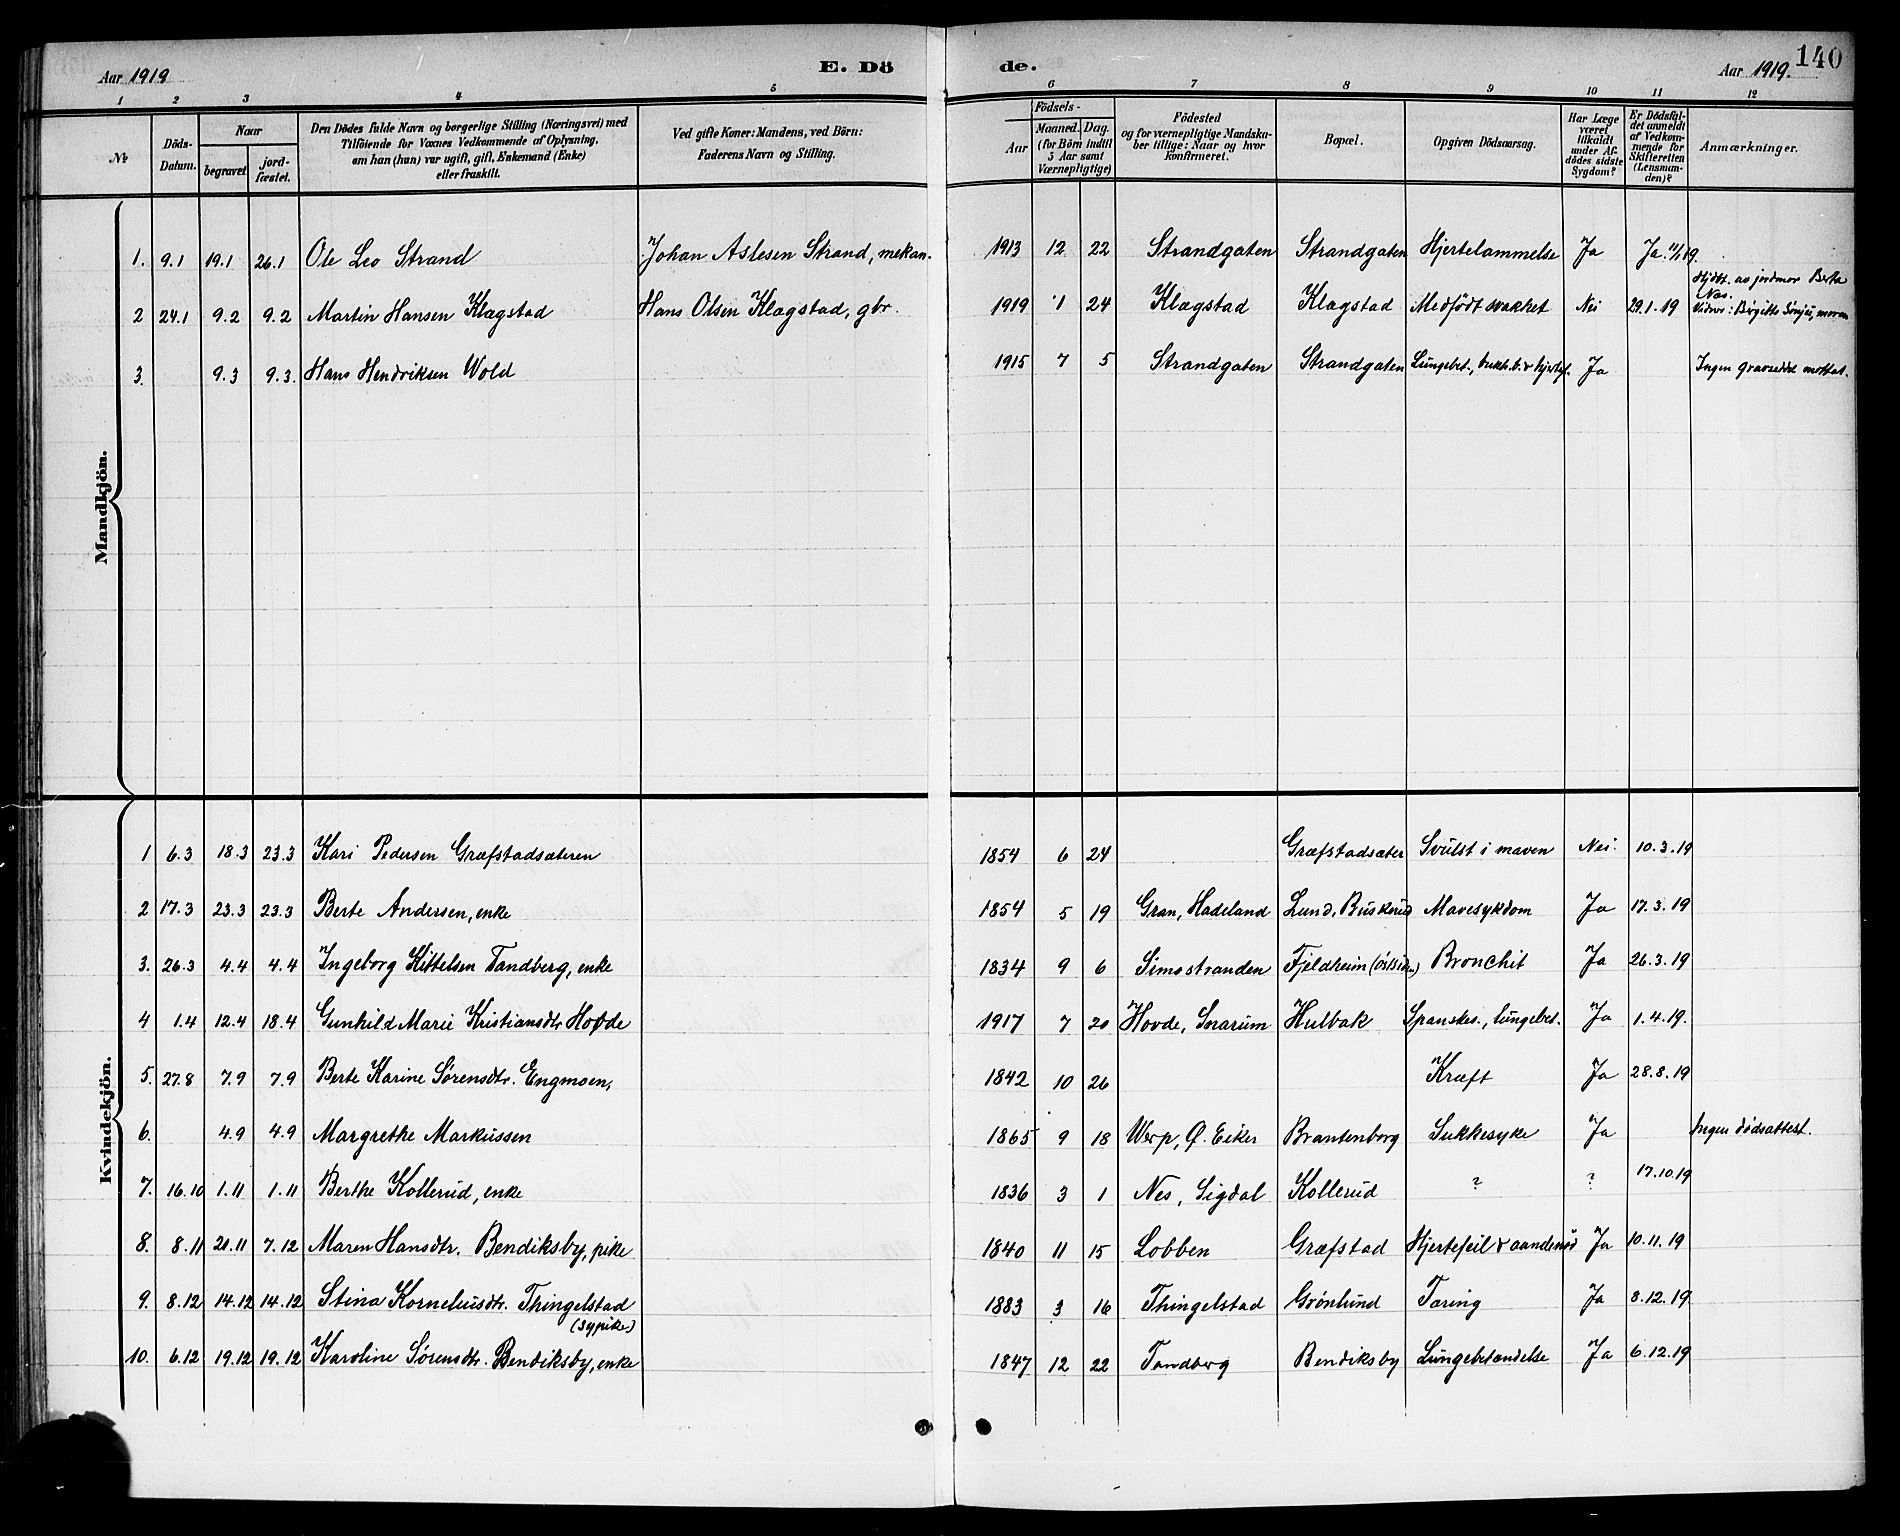 Aar 1919
E. Dö
de.
Aar 1919.
140
1 2 3 4 5 6 7 8 9 10 11 12
No
Döds-
Datum.
Naar
begravet
jord-
fæstet.
Den Dödes fulde Navn og borgerlige Stilling (Næringsvei) med
Tilföiende for Voxnes Vedkommende af Oplysning,
om han (hun) var ugift, gift, Enkemand (Enke)
eller fraskilt.
Ved gifte Koner: Mandens, ved Börn:
Faderens Navn og Stilling.
Födsels-
Aar
Maaned. Dag.
(for Börn indtil
5 Aar samt
Værnepligtige)
Födested
og for værnepligtige Mandska-
ber tillige: Naar og hvor
konfirmeret.
Bopæl.
Opgiven Dödsaarsag.
Har Læge
været
tilkaldt
under Af-
dödes sidste
Sygdom?
Er Dödsfal-
det anmeldt
af Vedkom-
mende for
Skifteretten
(Lensman-
den)?
Anmærkninger.
Mandkjön.
1. 9.1 19.1 26.1 Ole Leo Strand Johan Aslesen Strand, mekan. 1913 12 22 Strandgaten Strandgaten Hjertelammelse Ja Ja 11/1 19.
2 24.1 9.2 9.2 Martin Hansen Klægstad Hans Olsen Klægstad, gbr. 1919 1 24 Klægstad Klægstad Medfödt svakhet Nei 29.1.19 Hjdt. av jordmor Berta
Næs.
Vidner: Birgitte, moren
3. 9.3 9.3. Hans Hendriksen Wold 1915 7 5 Strandgaten Strandgaten Lungebet., & hjertef. Ja Ingen gravseddel mottat.
Kvindekjön.
1 6.3 18.3 23.3 Kari Pedersen Græfstadsæteren 1854 6 24 Græfstadsæter Svulst i maven Nei. 10.3.19
2 17.3 23.3 23.3 Berte Andersen, enke 1854 5 19 Gran, Hadeland Lund, Buskerud Mavesykdom Ja 17.3.19
3. 26.3 4.4 4.4 Ingeborg Kittelsen Tandberg, enke 1834 9 6 Simostranden Fjeldheim (östsiden) Bronchit Ja 26.3.19
4 1.4 12.4 18.4 Gunhild Marie Kristiansdtr Hovde 1917 7 20 Hovde, Snarum Hulbak Spanskes., lungebet. Ja 1.4.19.
5. 27.8 7.9 7.9 Berte Karine Sørensdtr. Engmoen, 1842 10 26 Kræft Ja 28.8.19
6. 4.9 4.9 Margrethe Markussen 1865 9 18 Werp, Ø. Eiker Brantenborg Sukkesyke Ja Ingen dödsattest.
7. 16.10 1.11 1.11 Berthe Kollerud, enke 1836 3 1 Nes, Sigdal Kollerud ? ? 17.10.19
8. 8.11 20.11 7.12 Maren Hansdtr. Bendiksby, pike 1840 11 15 Lobben Græfstad Hjertefeil & aandenöd Ja 10.11.19
9. 8.12 14.12 14.12 Stina Korneliusdtr. Thingelstad 1883 3 16 Thingelstad Grönlund Tæring Ja 8.12.19
(sypike)
10. 6.12 19.12 19.12 Karoline Sørensdtr. Bendiksby, enke 1847 12 22 Tandberg Bendiksby Lungebetændelse Ja 6.12.19